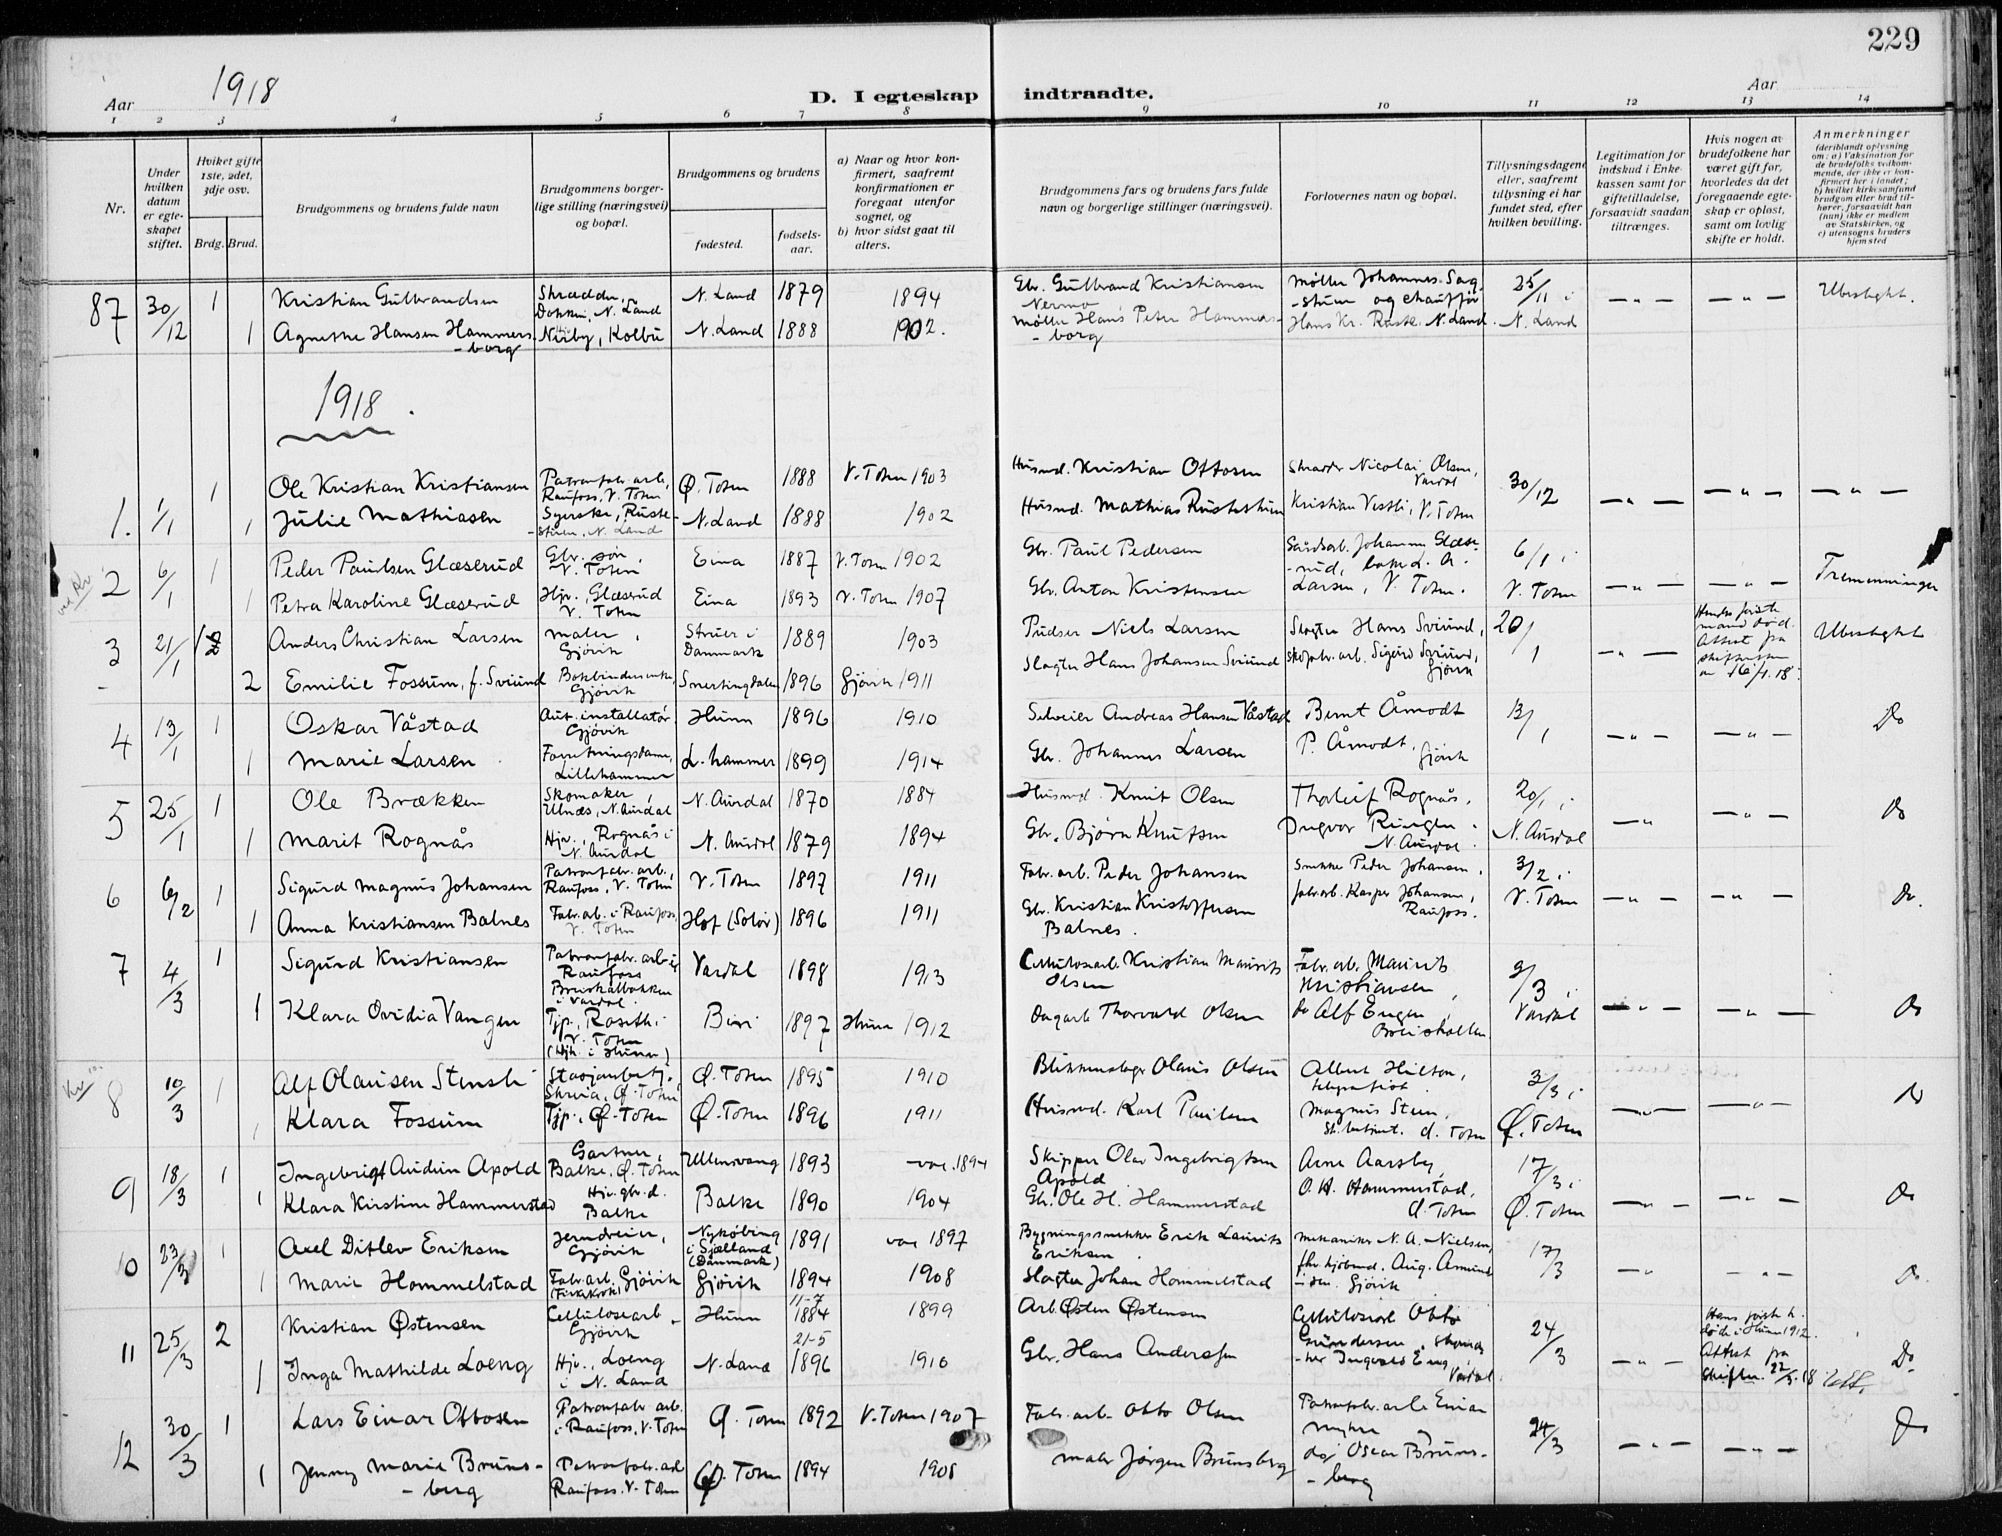 229
Aar 1918
D. I egteskap indtraadte.
Aar
1 2 3 4 5 6 7 8 9 10 11 12 13 14
Nr.
Under hvilken datum er egteskapet stiftet.
Hviket gifte 1ste, 2det, 3dje osv.
Brdg. Brud.
Brudgommens og brudens fulde navn
Brudgommens borgerlige stilling (næringsvei) og bopæl.
Brudgommens og brudens
fødested.
fødselsaar.
a) Naar og hvor konfirmert, saafremt konfirmationen er foregaat utenfor sognet, og
b) hvor sidst gaat til alters.
Brudgommens fars og brudens fars fulde navn og borgerlige stillinger (næringsvei).
Forlovernes navn og bopæl.
Tillysningsdagene eller, saafremt tillysning ei har fundet sted, efter hvilken bevilling.
Legitimation for indskud i Enkekassen samt for giftetilladelse, forsaavidt saadan tiltrænges.
Hvis nogen av brudefolkene har været gift før, hvorledes da det foregaaende egteskap er opløst, samt om lovlig skifte er holdt.
Anmerkninger
(deriblandt oplysning om: a) Vaksination for de brudefolks vedkommende, der ikke er konfirmert her i landet; b) hvilket kirkesamfund brudgom eller brud tilhører, forsaavidt han (hun) ikke er medlem av Statskirken, og c) utensogns bruders hjemsted
87 30/12 1 Kristian Gulbrandsen Skrædder, Dokka, N. Land N. Land 1879 1894 Gbr. Gulbrand Kristiansen Nermo Møller Johannes Sagstuen og chauffør 25/11 i — " — — " — Ubeslegtet.
1 Agnethe Hansen Hammersborg Nüby, Kolbu N. Land 1888 1902. Møller Hans Peter Hammersborg Hans Kr. Rusk. N. Land. N. Land
1918.
1. 1/1 1 Ole Kristian Kristiansen Patronfabr. arb., Raufoss, V. Toten Ø. Toten 1888 V. Toten 1903 Husmd. Kristian Ottosen Skrædr Nicolai Olsen, Vardal 30/12 — " — — " — — " —
1 Julie Mathiasen Syerske, Rustestuen, N. Land N. Land 1888 1902 Husmd. Mathias Rustestuen Kristian Vestli, V. Toten
2 6/1 1 Peder Paulsen Glæserud Gbr. søn, V. Toten Eina 1887 V. Toten 1902 Gbr. Paul Pedersen Gaardsarb. Johannes Glæserud, 6/1 i — " — — " — Tremenninger
1 Petra Karoline Glæserud Hjv., Glæserud V. Toten Eina 1893 V. Toten 1907 Gbr. Anton Kristensen Larsen, V. Toten. V. Toten
3 21/1 1 Anders Christian Larsen maler, Gjøvik Struer i Danmark 1889 1903 Pudser Niels Larsen Slagter Hans Sviund, 20/1 — " — Hendes første mand død. Attest fra skifteretten av 16/1.18. Ubeslegtet
2 Emilie Fossum, f. Sviund Bokbinderenke, Gjøvik Snertingdalen 1896 Gjøvik 1911 Slagter Hans Johansen Sviund skofabr. arb. Sigurd Sviund, Gjøvik
4 13/1 1 Oskar Våstad Aut. installatør Gjøvik Hunn 1896 1910 Selveier Andreas Hansen Våstad Bernt Åmodt 13/1 — " — — " — Do
1 Marie Larsen Forretningsdame, Lillehammer L. hammer 1899 1914 Gbr. Johannes Larsen P. Åmodt, Gjøvik
5 25/1 1 Ole Brækken Skomaker, Ulnæs, N. Aurdal N. Aurdal 1870 1884 Husmd. Knut Olsen Thorleif Rognås, 20/1 i — " — " — Do
1 Marit Rognås Hjv., Rognås i N. Aurdal N. Aurdal 1879 1894 Gbr. Bjørn Knutsen Ingvar Ringen N. Aurdal. N. Aurdal
6 6/2 1 Sigurd Magnus Johansen Patronfabr. arb., Raufoss, V. Toten V. Toten 1897 1911 Fabr. arb. Peder Johansen Snekker Peder Johansen, 3/2 i — " — — " — Do.
1 Anna Kristiansen Balnes Fabr. arb. i Raufoss, V. Toten Hof (Solør) 1896 1911 Gbr. Kristian Kristoffersen Balnes. fabr. arb. Kasper Johansen, Raufoss. V. Toten
7 4/3 1 Sigurd Kristiansen Patronfabr. arb. Raufoss Breiskalbakken i Vardal. Vardal 1898 1913 Cellulosearb. Kristian Maurits Olsen Fabr. arb. Maurits Kristiansen, /3 i — " — — " — Do
1 Klara Ovidia Vangen Tjp., Roseth i V. Toten (Hjh. i Hunn) Biri 1897 Hunn 1912 Dagarb. Thorvald Olsen do Alf Eugen Breiskallen Vardal
8 10/3 1 Alf Olausen Stensli Stasjonsbetj. Skreia, Ø. Toten Ø. Toten 1895 1910 Blikkenslager Olaus Olsen Albert Hilton, telegrafist 3/3 i — " — — " — Do
1 Klara Fossum Tjp., Ø. Toten Ø. Toten 1896 1911 Husmd. Karl Paulsen Magnus Steen, St. betjent. Ø. Toten Ø. Toten
9 18/3 1 Ingebrigt Audun Apold Gartner, Balke, Ø. Toten Ullensvang 1893 vac. 1894 Skipper Olav Ingebrigtsen Apold Arne Aarsby, 17/3 i — " — — " — Do
1 Klara Kirstine Hammerstad Hjv. gbr. d. Balke Balke 1890 1904 Gbr. Ole H. Hammerstad O. H. Hammerstad, Ø. Toten Ø. Toten
10 23/3 1 Axel Ditlev Eriksen Jerndreier, Gjøvik Nykøbing i Sjælland (Danmark) 1891 vac 1897 Bygningssnekker Erik Laurits Eriksen Mekaniker N. A. Nielsen, 17/3 — " — " — Do.
1 Marie Hommelstad Fabr. arb. Gjøvik Gjøvik 1894 1908 Slagter Johan Hommelstad Aug. Amundsen. Gjøvik
11 25/3 2 Kristian Østensen Cellulosearb. Gjøvik Hunn 11-7 1884 1899 Arb. Østen Østensen Cellulosearb Otto Gundersen, 24/3 — " — Hans første h. døde i Hunn 1912. Attest fra skifter. 22/3.18 Do
1 Inga Mathilde Loeng Hjv., Loeng i N. Land N. Land 21-5 1896 1910 Gbr. Hans Anderssen Ingvald Eng, Vardal.
12 30/3 1 Lars Einar Ottosen Patronfabr. arb. i Raufoss, V. Toten Ø. Toten 1892 V. Toten 1907 Fabr. arb. Otto Olsen Patronfabr. arb. Einar Myhre 24/3 — " — — " — Do
1 Jenny Marie Brunsberg Patronfabr. arb Raufoss. V. Toten Ø. Toten 1894 1908 maler Jørgen Brunsberg do, Oscar Brunsberg